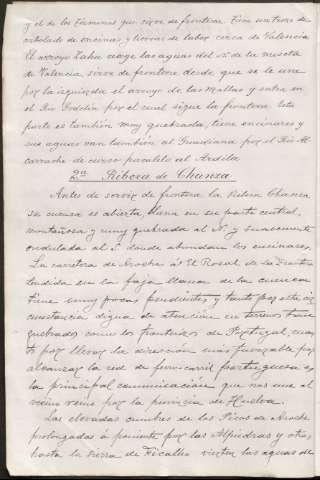 y el de los términos que sirve de frontera. Tiene un trozo de
arbolado de encinas y tierras de labor cerca de Valencia
El arroyo Zahu recoge las aguas del S. de la meseta
de Valencia, sirve de frontera desde que se le une
por la izquierda el arroyo de las Mallas y entra en
el Rio Godolin por el cual sigue la frontera. Esta
parte es tambien muy quebrada, tiene encinares y
sus aguas van tambien al Guadiana por el Rio Al
carrache de curso paralelo al Ardila
2ª Ribera de Chanza
Antes de servir de frontera la Ribera Chanza
su cuenca es abierta, llana en su parte central,
montañosa y muy quebrada al N. y suavemente
ondulada al S. donde abundan los encinares.
La carretera de Aroche á El Rosal de la Frontera
tendida en la faja llana de la cuenca
tiene muy pocas pendientes y tanto por esta cir
cunstancia digna de atencion en terrenos tan
quebrados como los fronterizos de Portugal, cuan
to por llevar la direccion mas favorable para
alcanzar la red de ferrocarril portuguesa es
la principal comunicacion que nos une al
vecino reino por la provincia de Huelva.
Las elevadas cumbres de los Picos de Aroche
prolongadas á poniente por las Alpiedras y otras
hasta la sierra de Ficalho vierten las aguas de